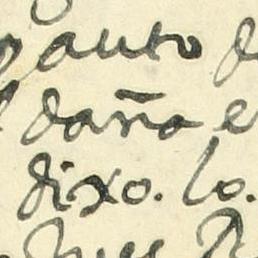 auto
daña e
dixo. lo.